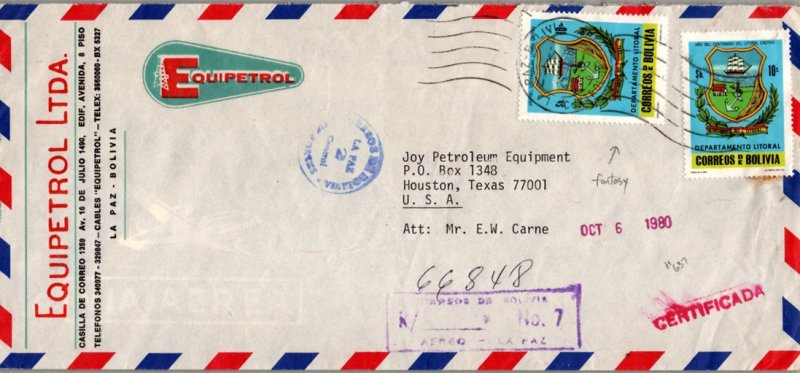 EQUIPETROL LTDA.
CASILLA DE CORREO 1359 Av. 16 DE JULIO 1490, EDIF. AVENIDA, 8 PISO
TELEFONOS 340877 - 329847 - CABLES "EQUIPETROL" - TELEX: 3560060 - BX 5327
LA PAZ - BOLIVIA
EQUIPETROL
LA PAZ
LA PAZ - BOLIVIA
DEPARTAMENTO LITORAL
CORREOS DE BOLIVIA
AÑO DEL CENTENARIO DEL LITORAL CAUTIVO
$b. 10.-
DEPARTAMENTO LITORAL
CORREOS DE BOLIVIA
Joy Petroleum Equipment
P.O. Box 1348
Houston, Texas 77001
U. S. A.
Att: Mr. E.W. Carne
fantasy
OCT 6 1980
66848
CORREOS DE BOLIVIA
R/ No. 7
AEREO - LA PAZ
CERTIFICADA